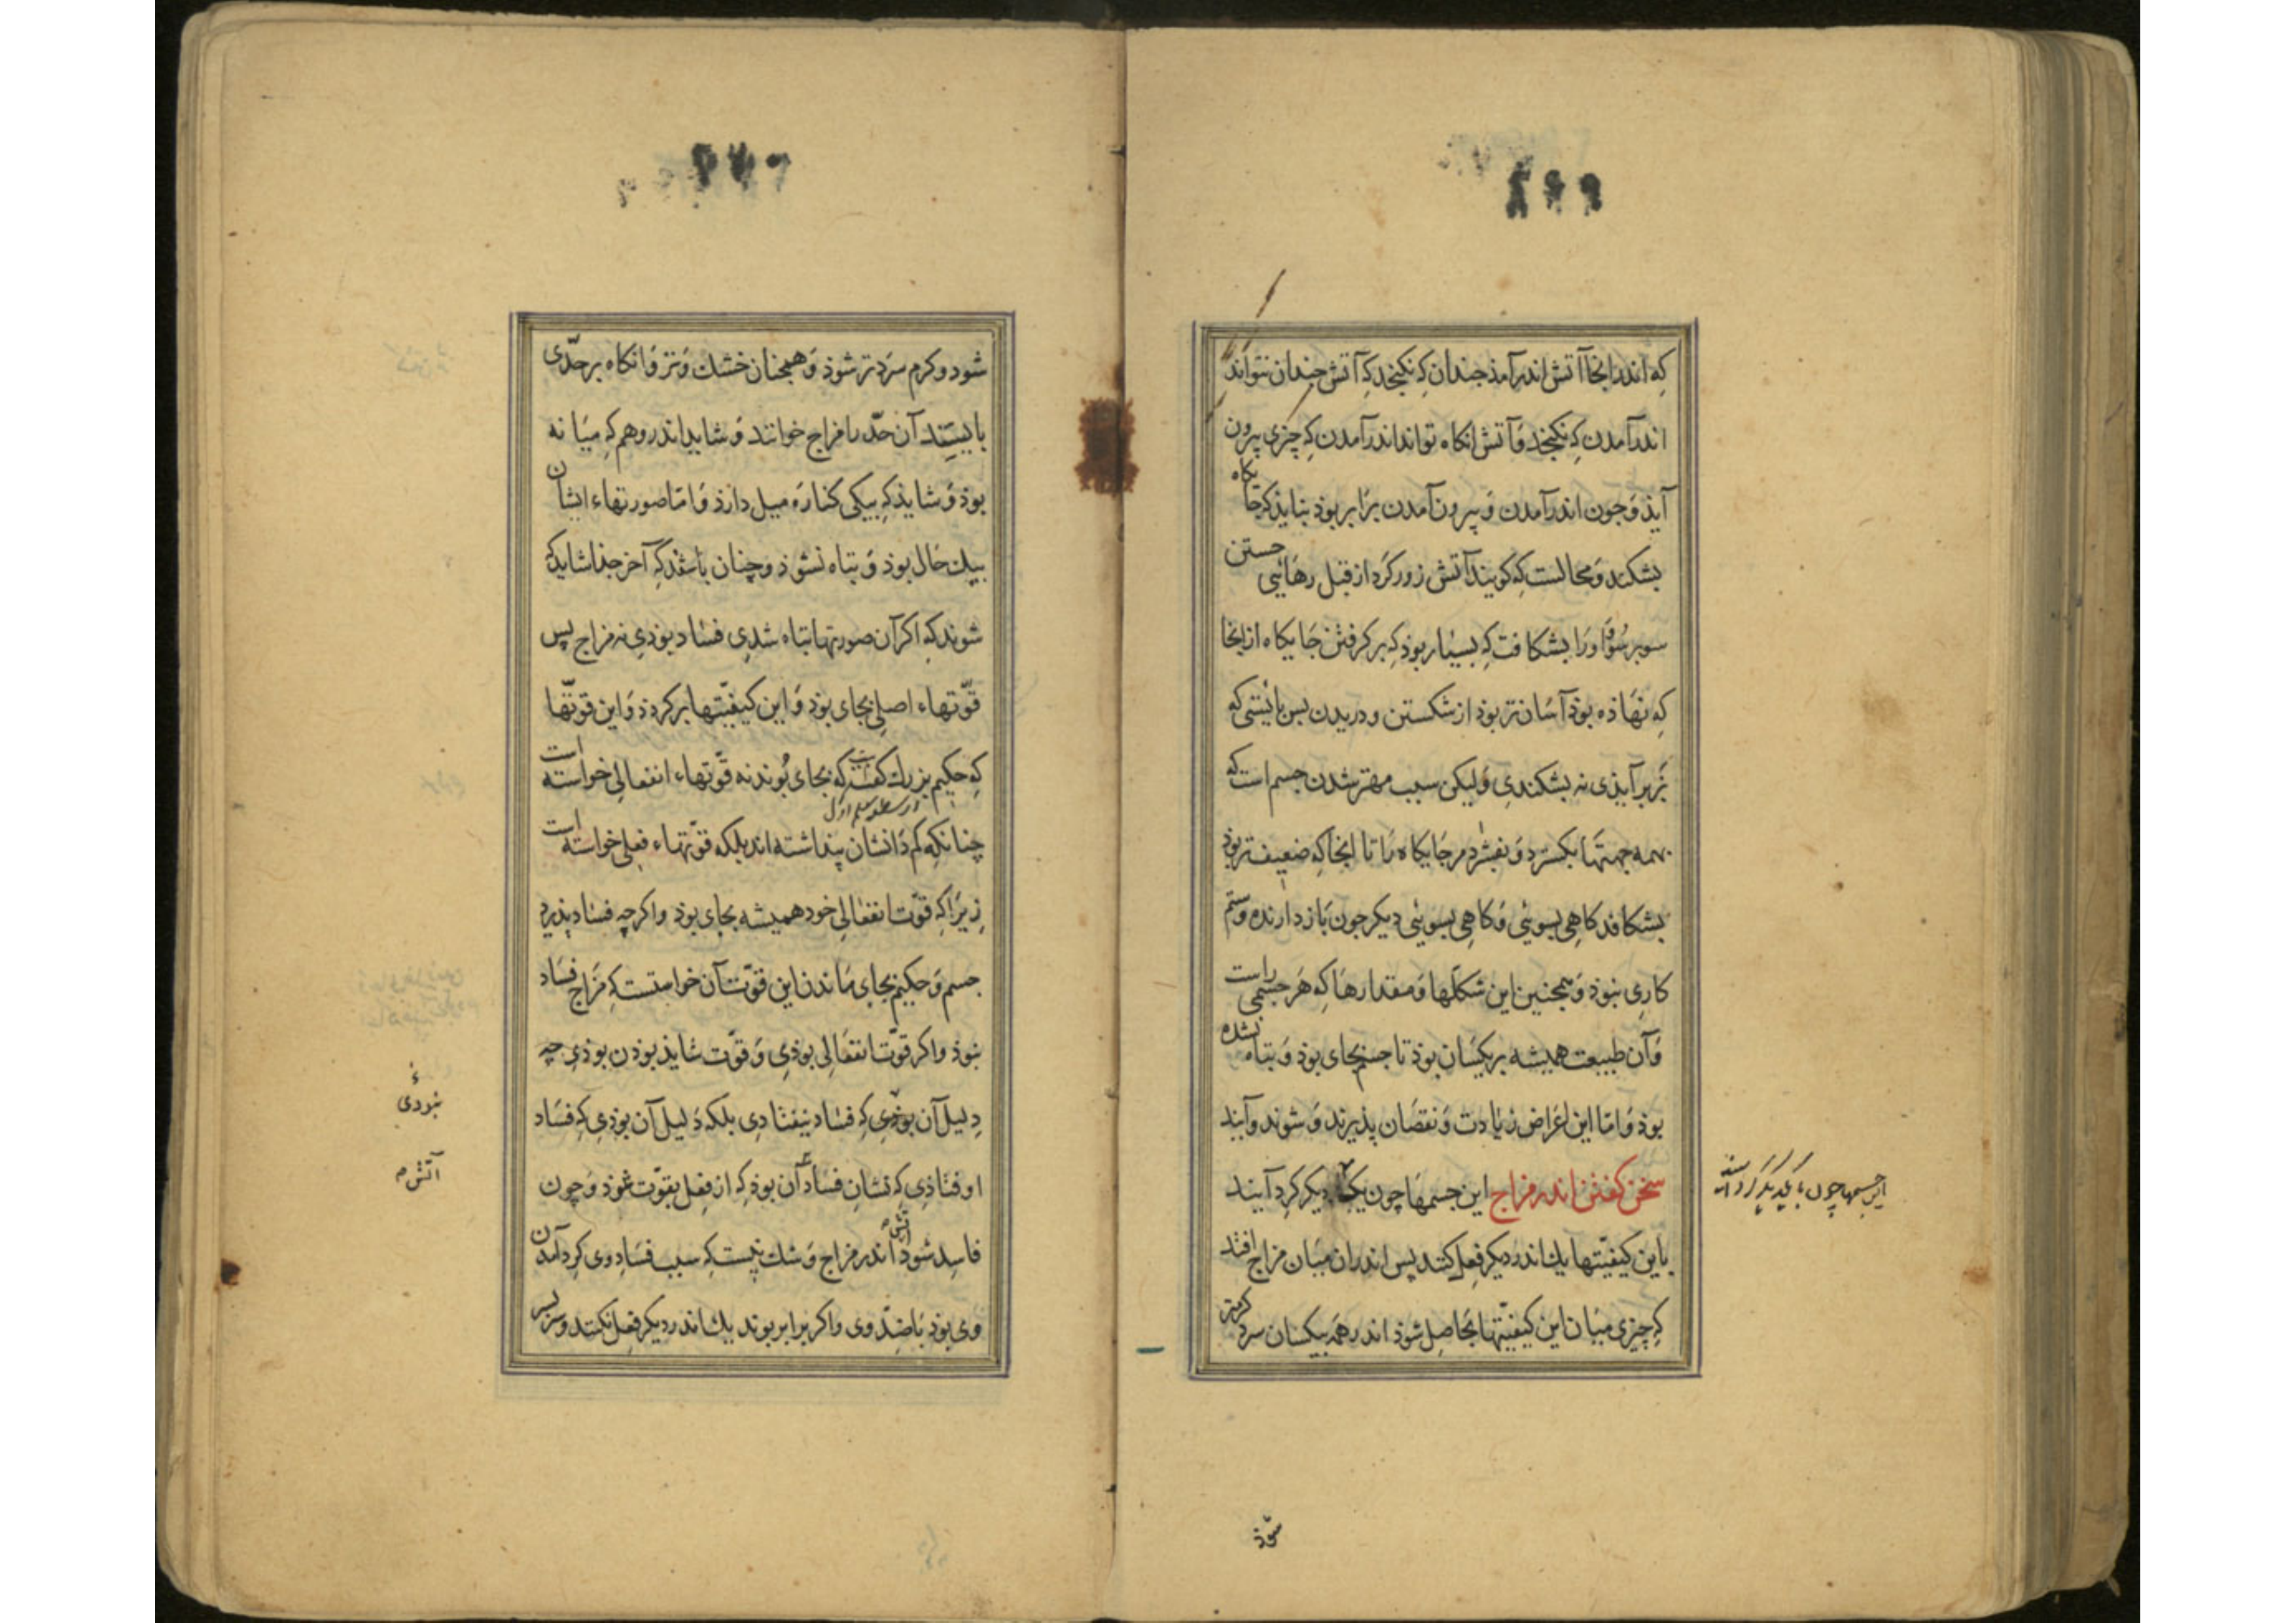 که اندر انجا آتش اندر آمذ جندان که نکنجد که آتش جندان نتواند
اندر آمدن که نکنجد وَ آتش انکاه تواند اندر آمدن که چزی بیرون
آیذ وَ جون اندر آمدن وَ بیرون آمدن برابر بوذ نباید که جایکاه
بشکند وَ محالست که کویند آتش زور کرد از قبل رهائیی جستن
سوبر سُو وَ اورا بشکافت که بسیار بوذ که بر کرفتن جایکاه از انجا
که نهاذه بوذ آسان تر بوذ از شکستن و دریدن بس بائیستی که
زبر آیذی نه بشکندی وَ لیکن سبب مهتر شدن جسم است که
بهمه جهتها بکسترد وَ بفشرد مر جایکاه را تا انجا که ضعیف تر بوذ
بشکافد کاهی بسوئی وَ کاهی بسوئی دیکر جون باز دارنده و ستم
کاری نبوذ وَ همجنین این شکلها وَ مقدارها که هر جسمی راست
وَ آن طبیعت همیشه بر یکسان بوذ تا جسم بجای بوذ وَ تباه نشده
بوذ وَ امّا این اعراض زیادت وَ نقصان پذیرند وَ شوند و آیند
سخن کفتن اندر مزاج این جسمها چون یکبا دیکر کرد آیند
این جسمها چون با یکدیکر کرد آیند
باین کیفیّتها یك اندر دیکر فعل کنند پس اندران میان مزاج افتد
که چیزی میان این کیفیّتها بحاصل شوذ اندر همه بیکسان سرد کرمتر
شوذ
شود و کرم سردتر شوذ وَ همجنان خشك وَ تر وَ انکاه بر حدّی
بایستند آن حدّ را مزاج خوانند وَ شاید اندر وهم که میانه
بوذ وَ شایذ که بیکی کناره میل دارذ وَ امّا صورتهاء ایشان
بیك حال بوذ وَ تباه نشوذ و چنان باشد که آخر جذا شاید که
شوند که اکر آن صورتها تباه شدی فساد بوذی نه مزاج پس
قوّتهاء اصلی بجای بوذ وَ این کیفیّتها بر کردذ وَ این قوّتها
که حکیم بزرك کفته است که بجای بُوند نه قوّتهاء انفعالی خواسته است
ارسطو معلم اول
چنانکه کم دانشان پنداشته اند بلکه قوّتهاء فعلی خواسته است
زیرا که قوّت انفعالی خود همیشه بجای بوذ و اکر چه فساد پذیرد
جسم وَ حکیم بجای ماندن این قوّت آن خواستست که مزاج فساد
نبوذ و اکر قوّت انفعالی بوذی وَ قوّت شایذ بوذن بوذی چه
نبودی
دلیل آن بوذی که فساد نیفتادی بلکه دلیل آن بوذی که فساد
اوفتاذی که نشان فساد آن بوذ که از فعل بقوّت شوذ وَ چون
آتش
فاسد شوذ آتش اندر مزاج وَ شك نیست که سبب فساد وی کرد آمدن
وی بوذ با ضدّ وی و اکر برابر بوند یك اندر دیکر فعل نکنند و سر بسر